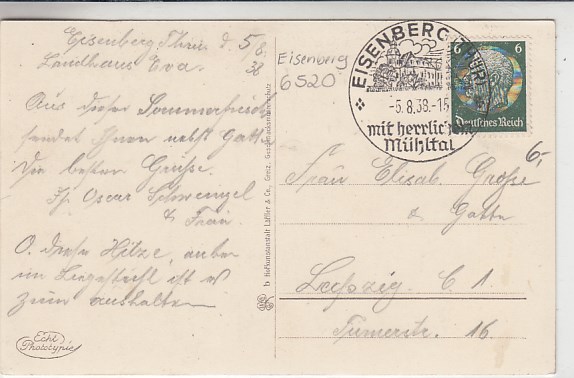 Eisenberg Thür. d. 5/8.
38
Landhaus Eva.
Aus dieser Sommerfrische
sendet Ihnen nebst Gatte
die besten Grüße.
Fr. Oscar Schwenzel
& Frau
O. diese Hitze, aber
im Liegestuhl ist es
zum aushalten
Echt
Photocypie
Eisenberg
6520
EISENBERG (THÜR)
-5.8.38.-15
mit herrlichem
Mühltal
6 6
Deutsches Reich
6,-
Frau Elisab. Große
& Gatte
Leipzig. C 1.
Turnerstr. 16.